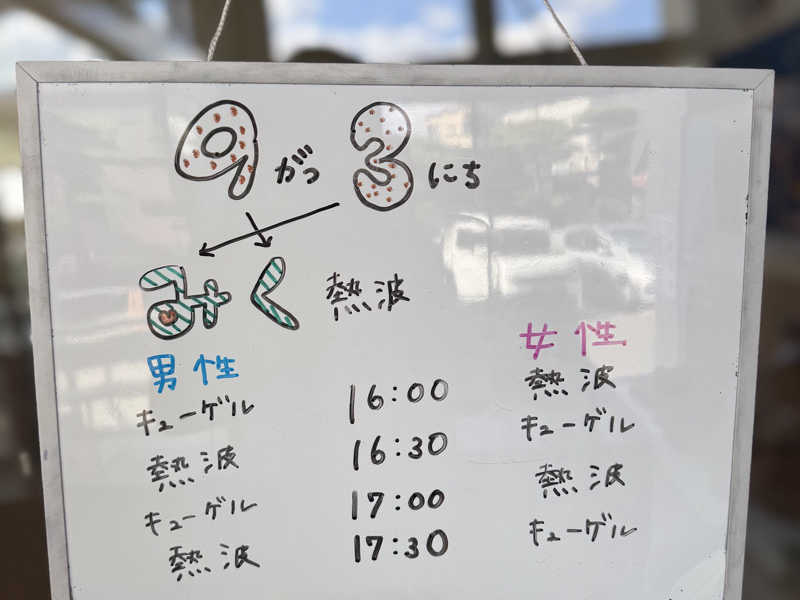 9がつ3にち
みく 熱波
男性 女性
キューゲル 16:00 熱波
熱波 16:30 キューゲル
キューゲル 17:00 熱波
熱波 17:30 キューゲル